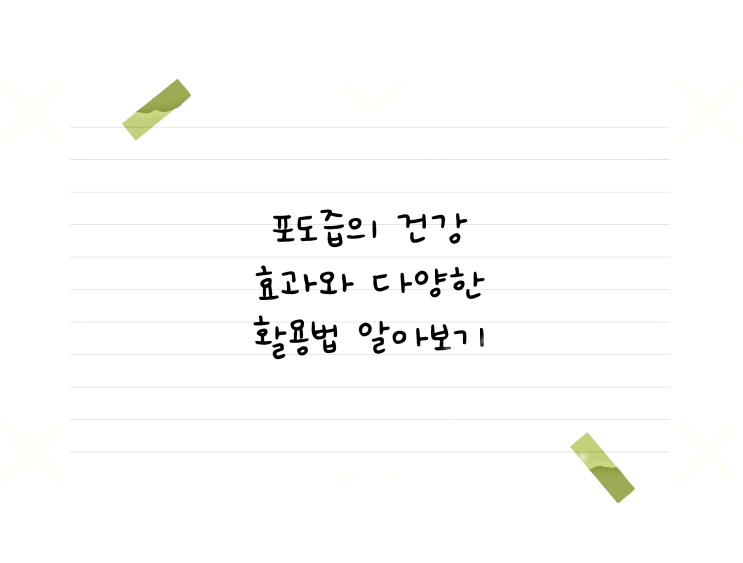 포도즙의 건강
효과와 다양한
활용법 알아보기